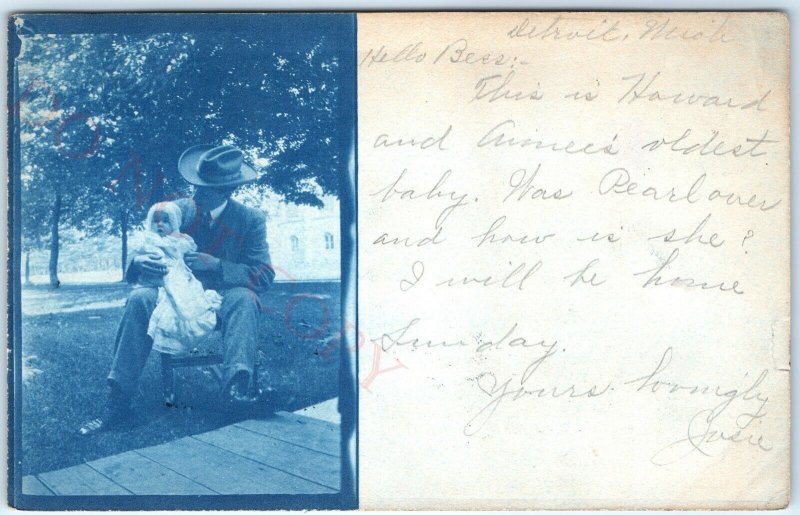 Detroit, Mich
Hello Bess:-
This is Howard
and Aimee's oldest
baby. Was Pearl over
and how is she?
I will be home
Sunday.
Yours lovingly
Josie
DO NOT COPY